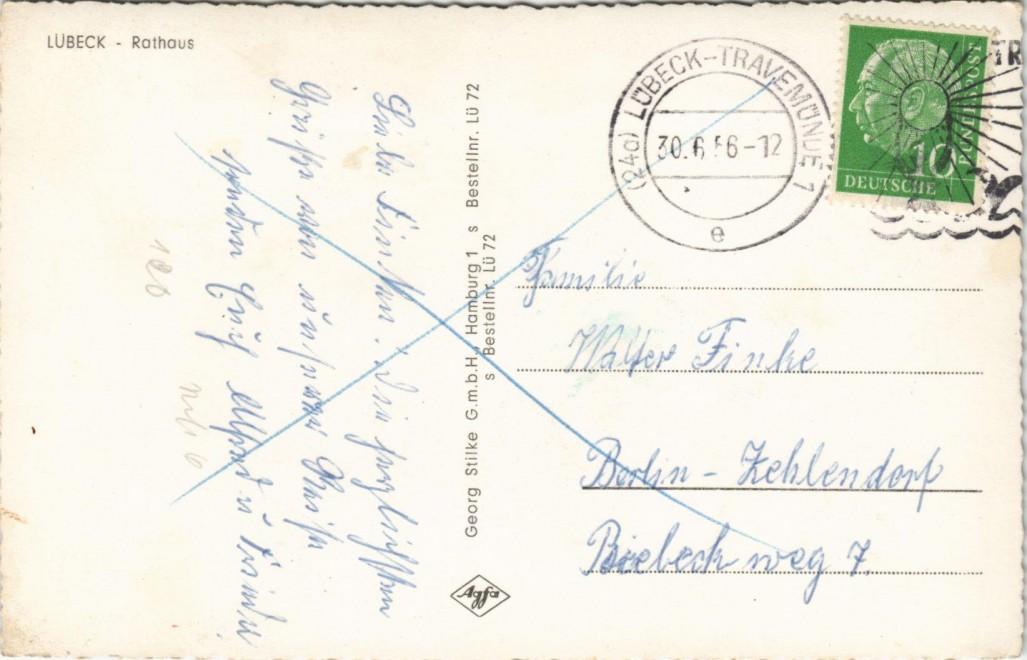 LÜBECK - Rathaus
Die herzlichsten
Grüße von unserer Reise
senden Euch Alfred u.
Georg Stilke G.m.b.H., Hamburg 1 s Bestellnr. Lü 72
s Bestellnr. Lü 72
Agfa
(24a) LÜBECK-TRAVEMÜNDE 1
30.6.56-12
e
TR
10
DEUTSCHE
BUNDESPOST
Familie
Walter Finke
Berlin - Zehlendorf
Biebeck weg 7.